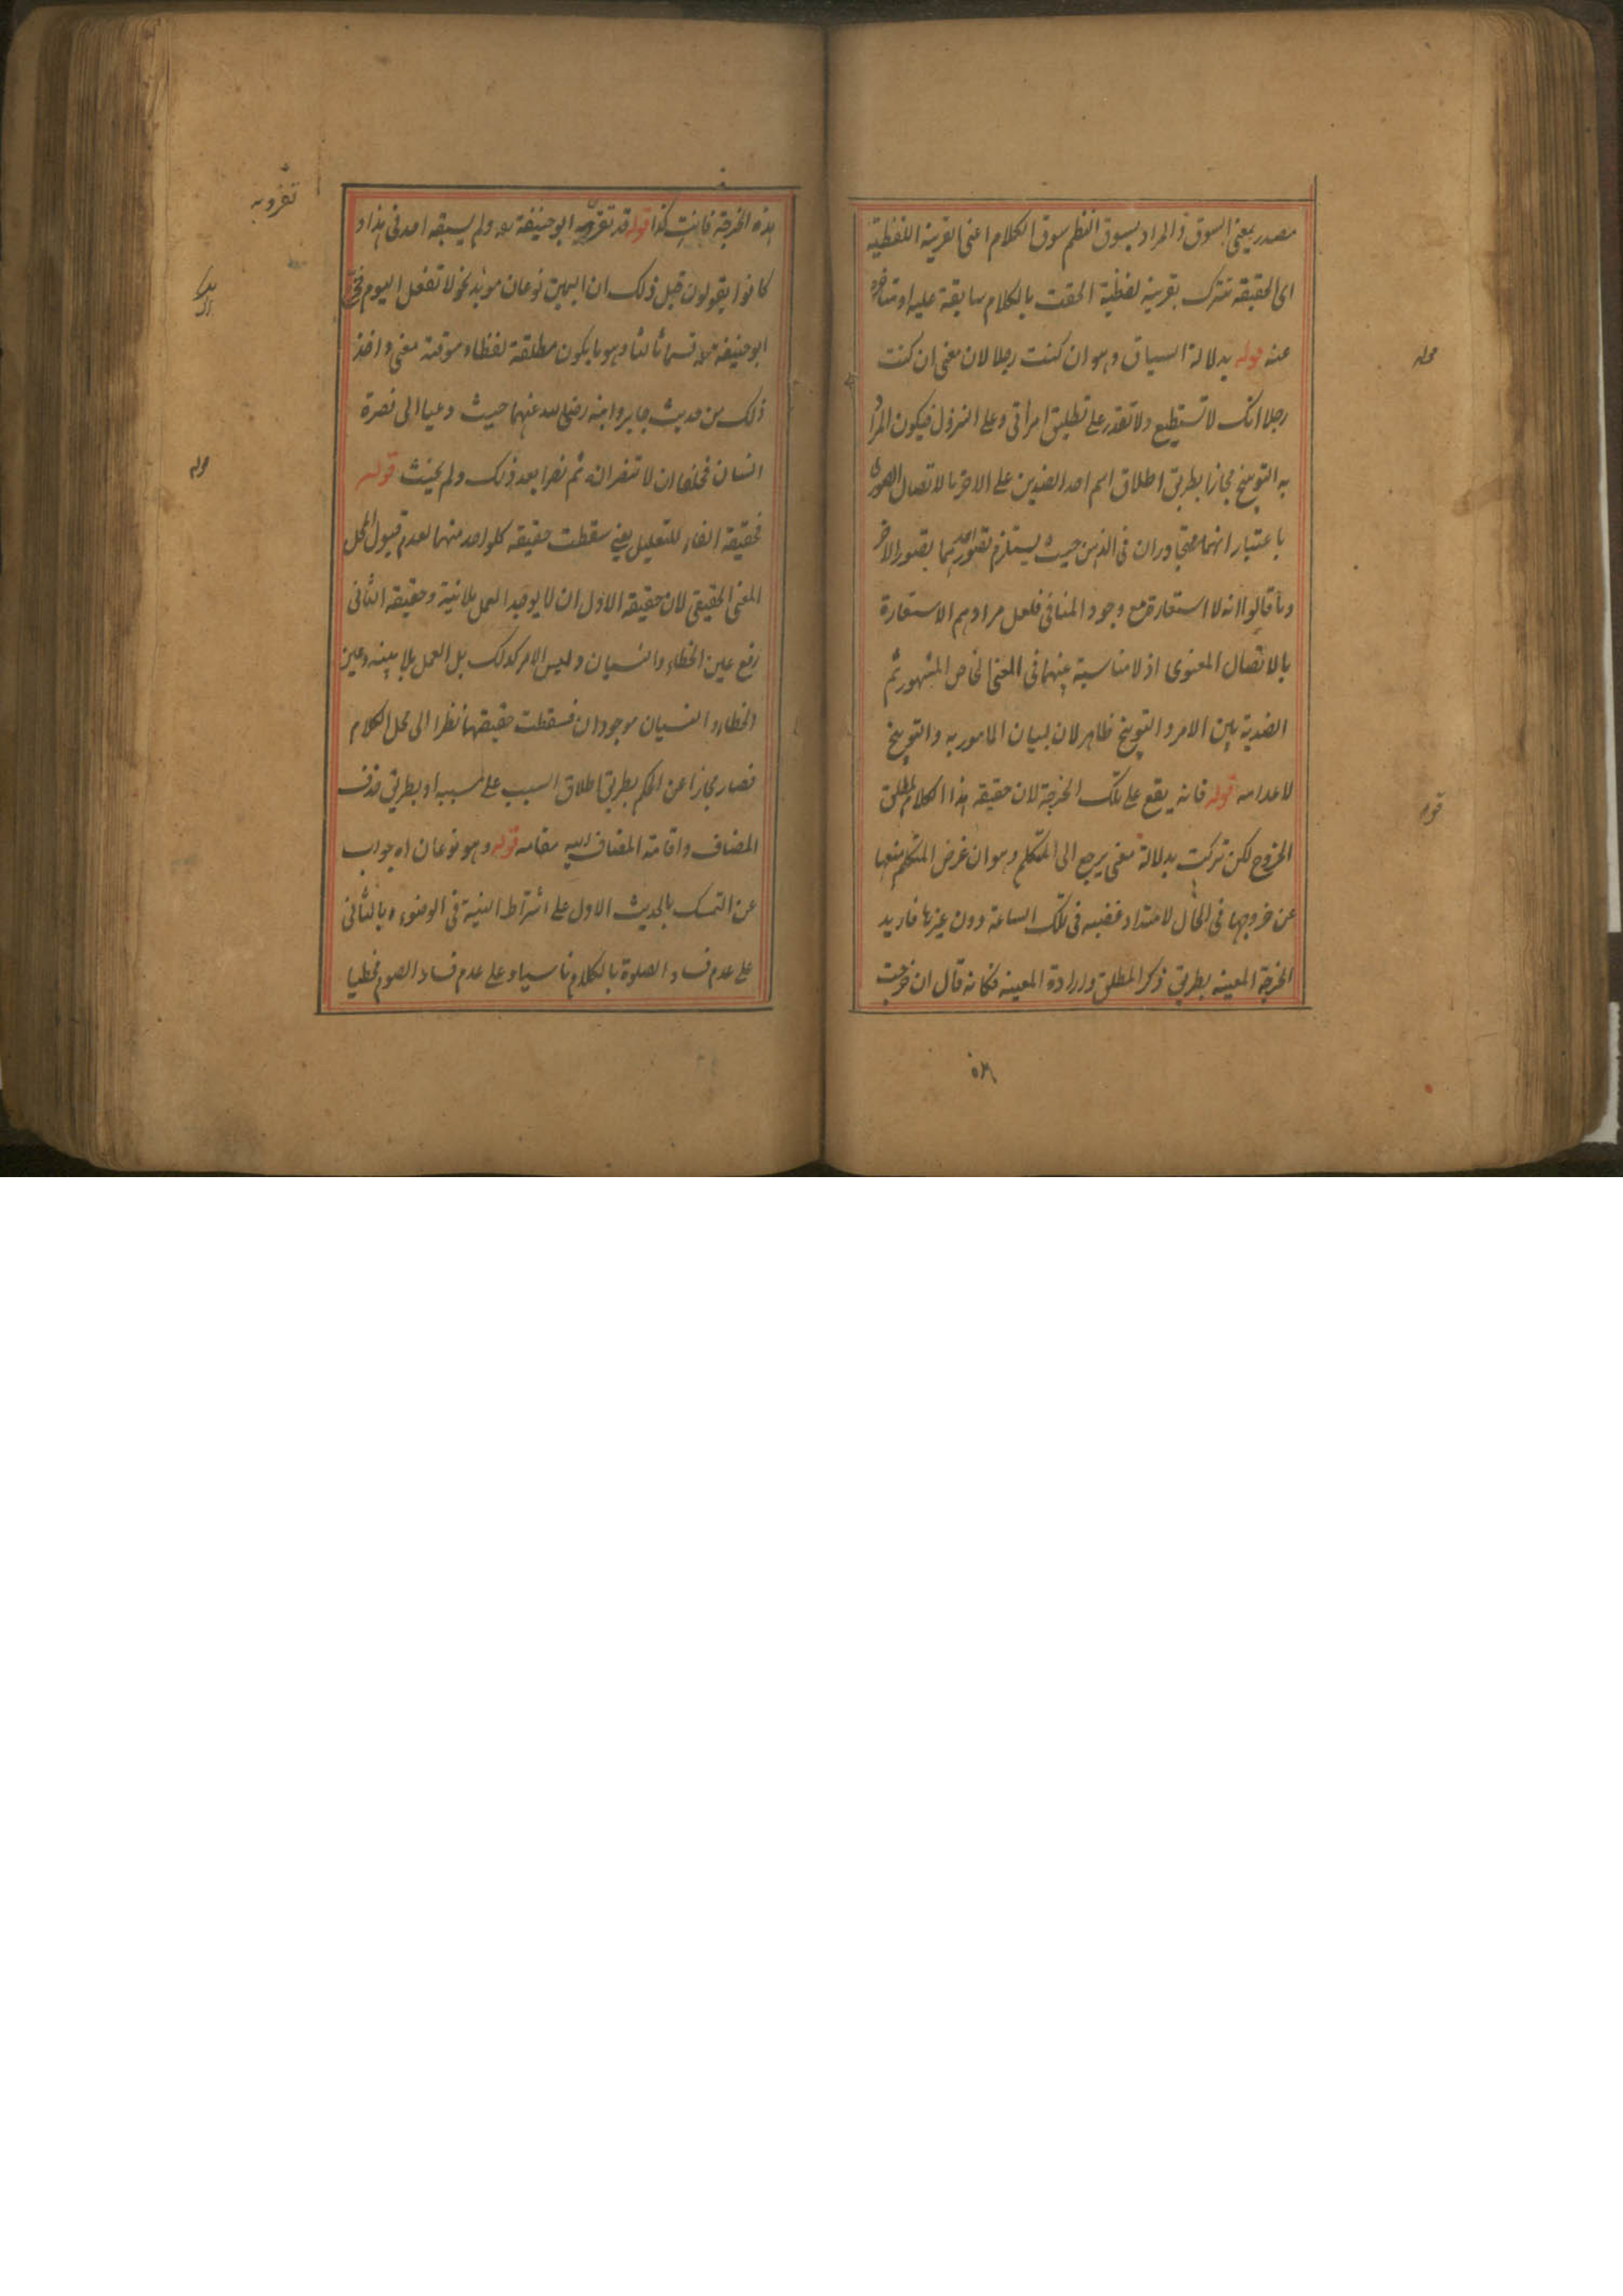 مصدر بمعنى السوق والمراد بسوق النظم سوق الكلام اعنى القرينة اللفظية
اى الحقيقة تترك بقرينة لفظية الحقت بالكلام سابقة عليه او متاخرة
عنه قوله بدلالة السياق وهو ان كنت رجلا لان معنى ان كنت
رجلا انك لا تستطيع ولا تقدر على تطليق امراتى وعلى النزول فيكون المراد
به التوبيخ مجازا بطريق اطلاق اسم احد الضدين على الاخر بالاتصال الصورى
باعتبار انهما متجاوران فى الذهن حيث يستلزم تصور احدهما بصور الاخر
وما قالوا انه لا استعارة مع وجود المنافى فلعل مرادهم الاستعارة
بالاتصال المعنوى اذ لا مناسبة بينهما فى المعنى الخاص المشهور ثم
الضدية بين الامر والتوبيخ ظاهر لان لبيان المامور به والتوبيخ
لاعدامه قوله فانه يقع على تلك الخرجة لان حقيقة هذا الكلام لمطلق
الخروج لكن تركت بدلالة معنى يرجع الى المتكلم وهو ان غرض المتكلم منعها
عن خروجها فى الحال لامتداد غضبه فى تلك الساعة دون غيرها فاريد
الخرجة المعينة بطريق ذكر المطلق وارادة المعينة فكانه قال ان خرجت
قوله
قوله
هذه الخرجة فانت كذا قوله قد تفرد به ابو حنيفة رح ولم يسبقه احد فى هذا و
كانوا يقولون قبل ذلك ان اليمين نوعان موبد نحو لا تفعل اليوم فخرج
ابو حنيفة رح قسما ثالثا وهو ما يكون مطلقة لفظا و موقتة معنى واخذ
ذلك من حديث جابر وابنه رضى الله عنهما حيث دعيا الى نصرة
انسان فحلفا ان لا تنصرانه ثم نصرا بعد ذلك ولم يحنث قوله
فحقيقة الفاء للتعليل يعنى سقطت حقيقة كلواحد منهما لعدم قبول المحل
المعنى الحقيقى لان حقيقة الاول ان لا يوجد العمل بلا نية وحقيقة الثانى
رفع عين الخطاء والنسيان وليس الامر كذلك بل العمل بلا نية وعين
الخطاء والنسيان موجودان فسقطت حقيقتها نظرا الى محل الكلام
فصار مجازا عن الحكم بطريق اطلاق السبب على مسببه او بطريق حذف
المضاف واقامة المضاف اليه مقامه قوله وهو نوعان اه جواب
عن التمسك بالحديث الاول على اشتراط النية فى الوضوء وبالثانى
على عدم فساد الصلوة بالكلام ناسيا وعلى عدم فساد الصوم مخطيا
تفرد به
قوله